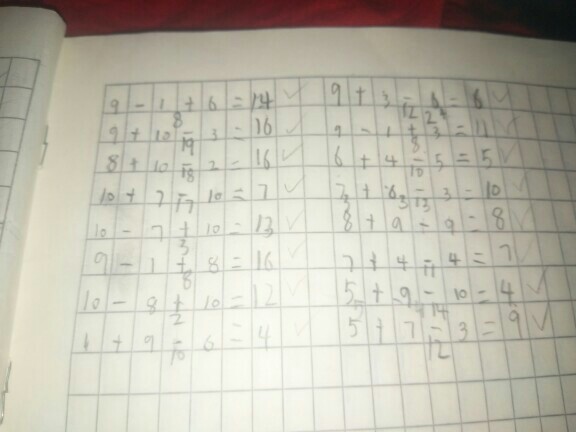 9 - 1 + 6 = 14 ✓ 9 + 3 - 6 = 6 ✓
8 12
9 + 10 - 3 = 16 ✓ 9 - 1 + 3 = 11 ✓
19 8
8 + 10 - 2 = 16 ✓ 6 + 4 - 5 = 5 ✓
18 10
10 + 7 - 10 = 7 ✓ + 3 = 10 ✓
17 13
10 - 7 + 10 = 13 ✓ 8 + 9 - 9 = 8 ✓
3
9 - 1 + 8 = 16 ✓ 7 + 4 - 4 = 7 ✓
8 11
10 - 8 + 10 = 12 ✓ 5 + 9 - 10 = 4 ✓
2 14
1 + 9 - 6 = 4 ✓ 5 + 7 - 3 = 9 ✓
10 12